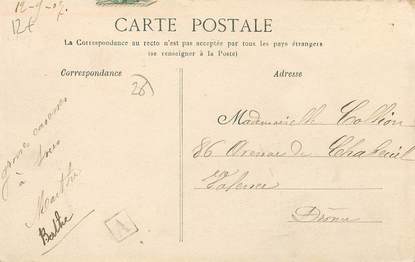 12-9-07.
12f
CARTE POSTALE
La Correspondance au recto n'est pas acceptée par tous les pays étrangers
(se renseigner à la Poste)
Correspondance
Adresse
26
Mademoiselle Collion
86 Avenue de Chabeuil
Valence
Drôme
grosses caresses
à tous
Marthe
Bathe
A